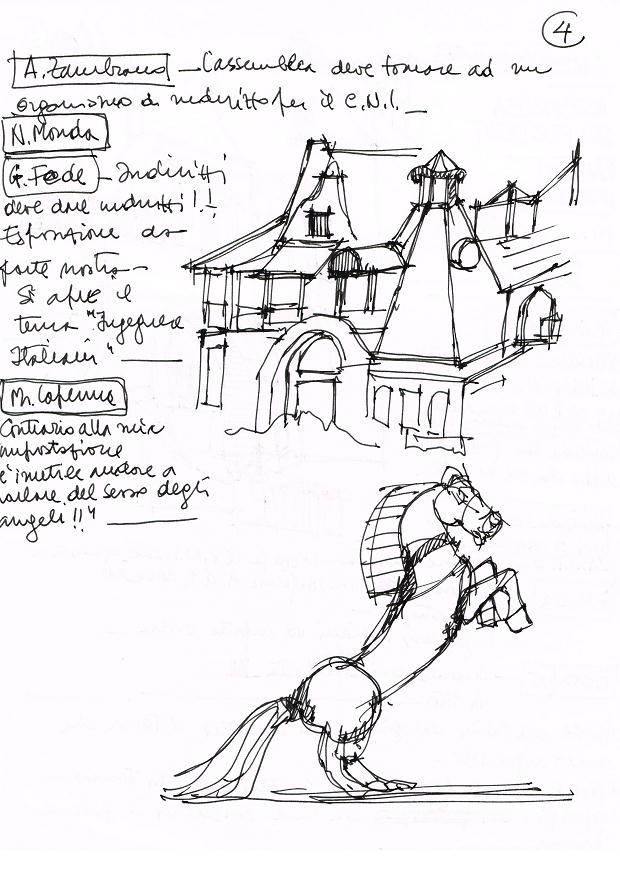 4
A. Zambrano — L'assemblea deve tornare ad un
organismo di indirizzo per il C.N.I. —
N. Monda
G. Fede — Indirizzi
deve dare indirizzi!!
Esposizione da
parte nostra —
Si apre il
tema "Ingegneri
Italiani"
M. Capenna
Contrario alla mia
impostazione
è inutile andare a
parlare del sesso degli
angeli!!"